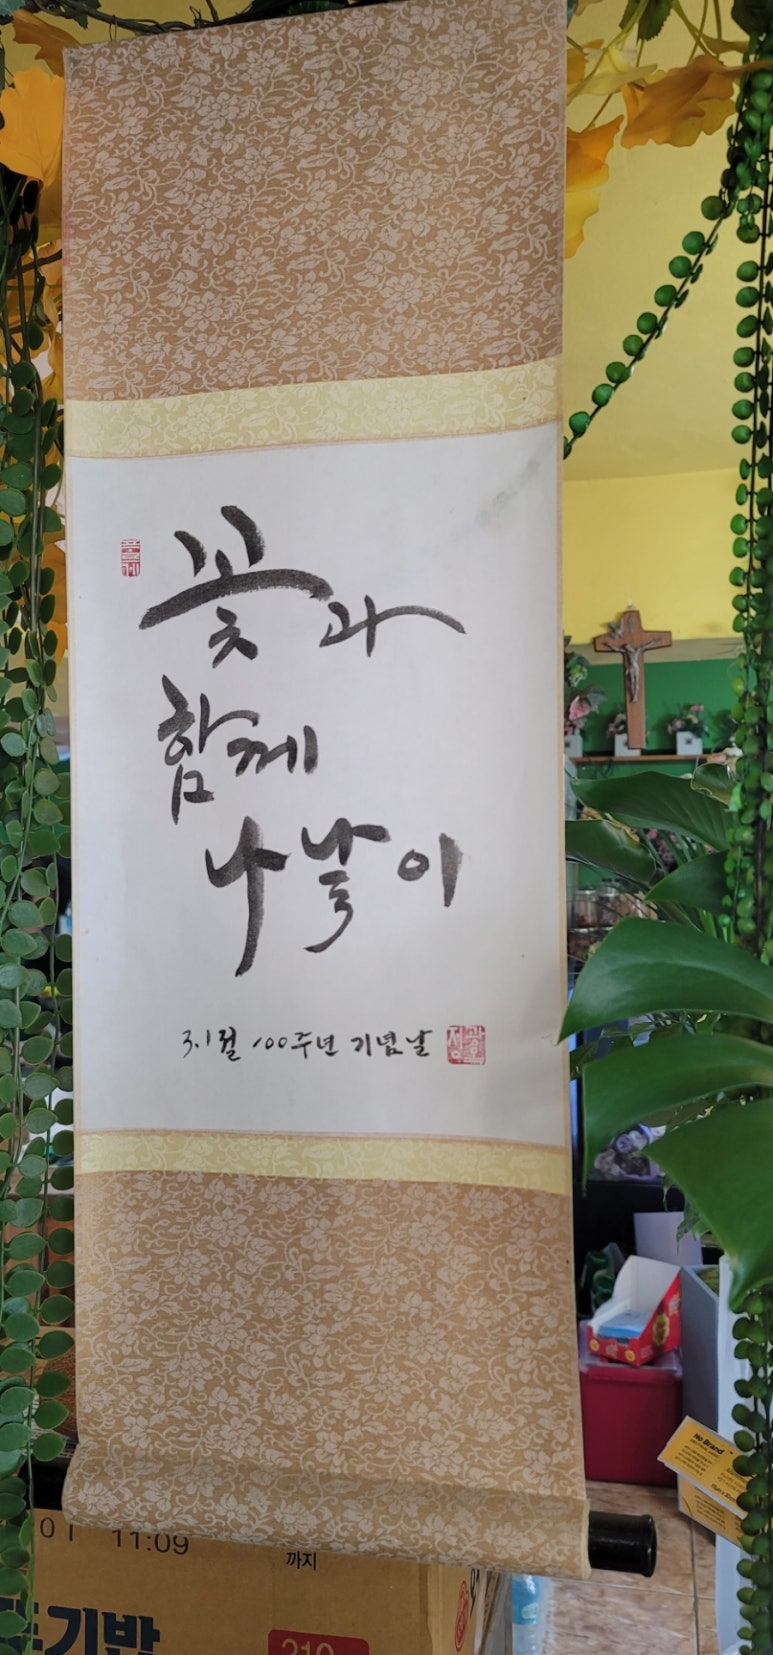 꽃과
함께
나날이
3.1절 100주년 기념날
11:09
까지
210
No Brand